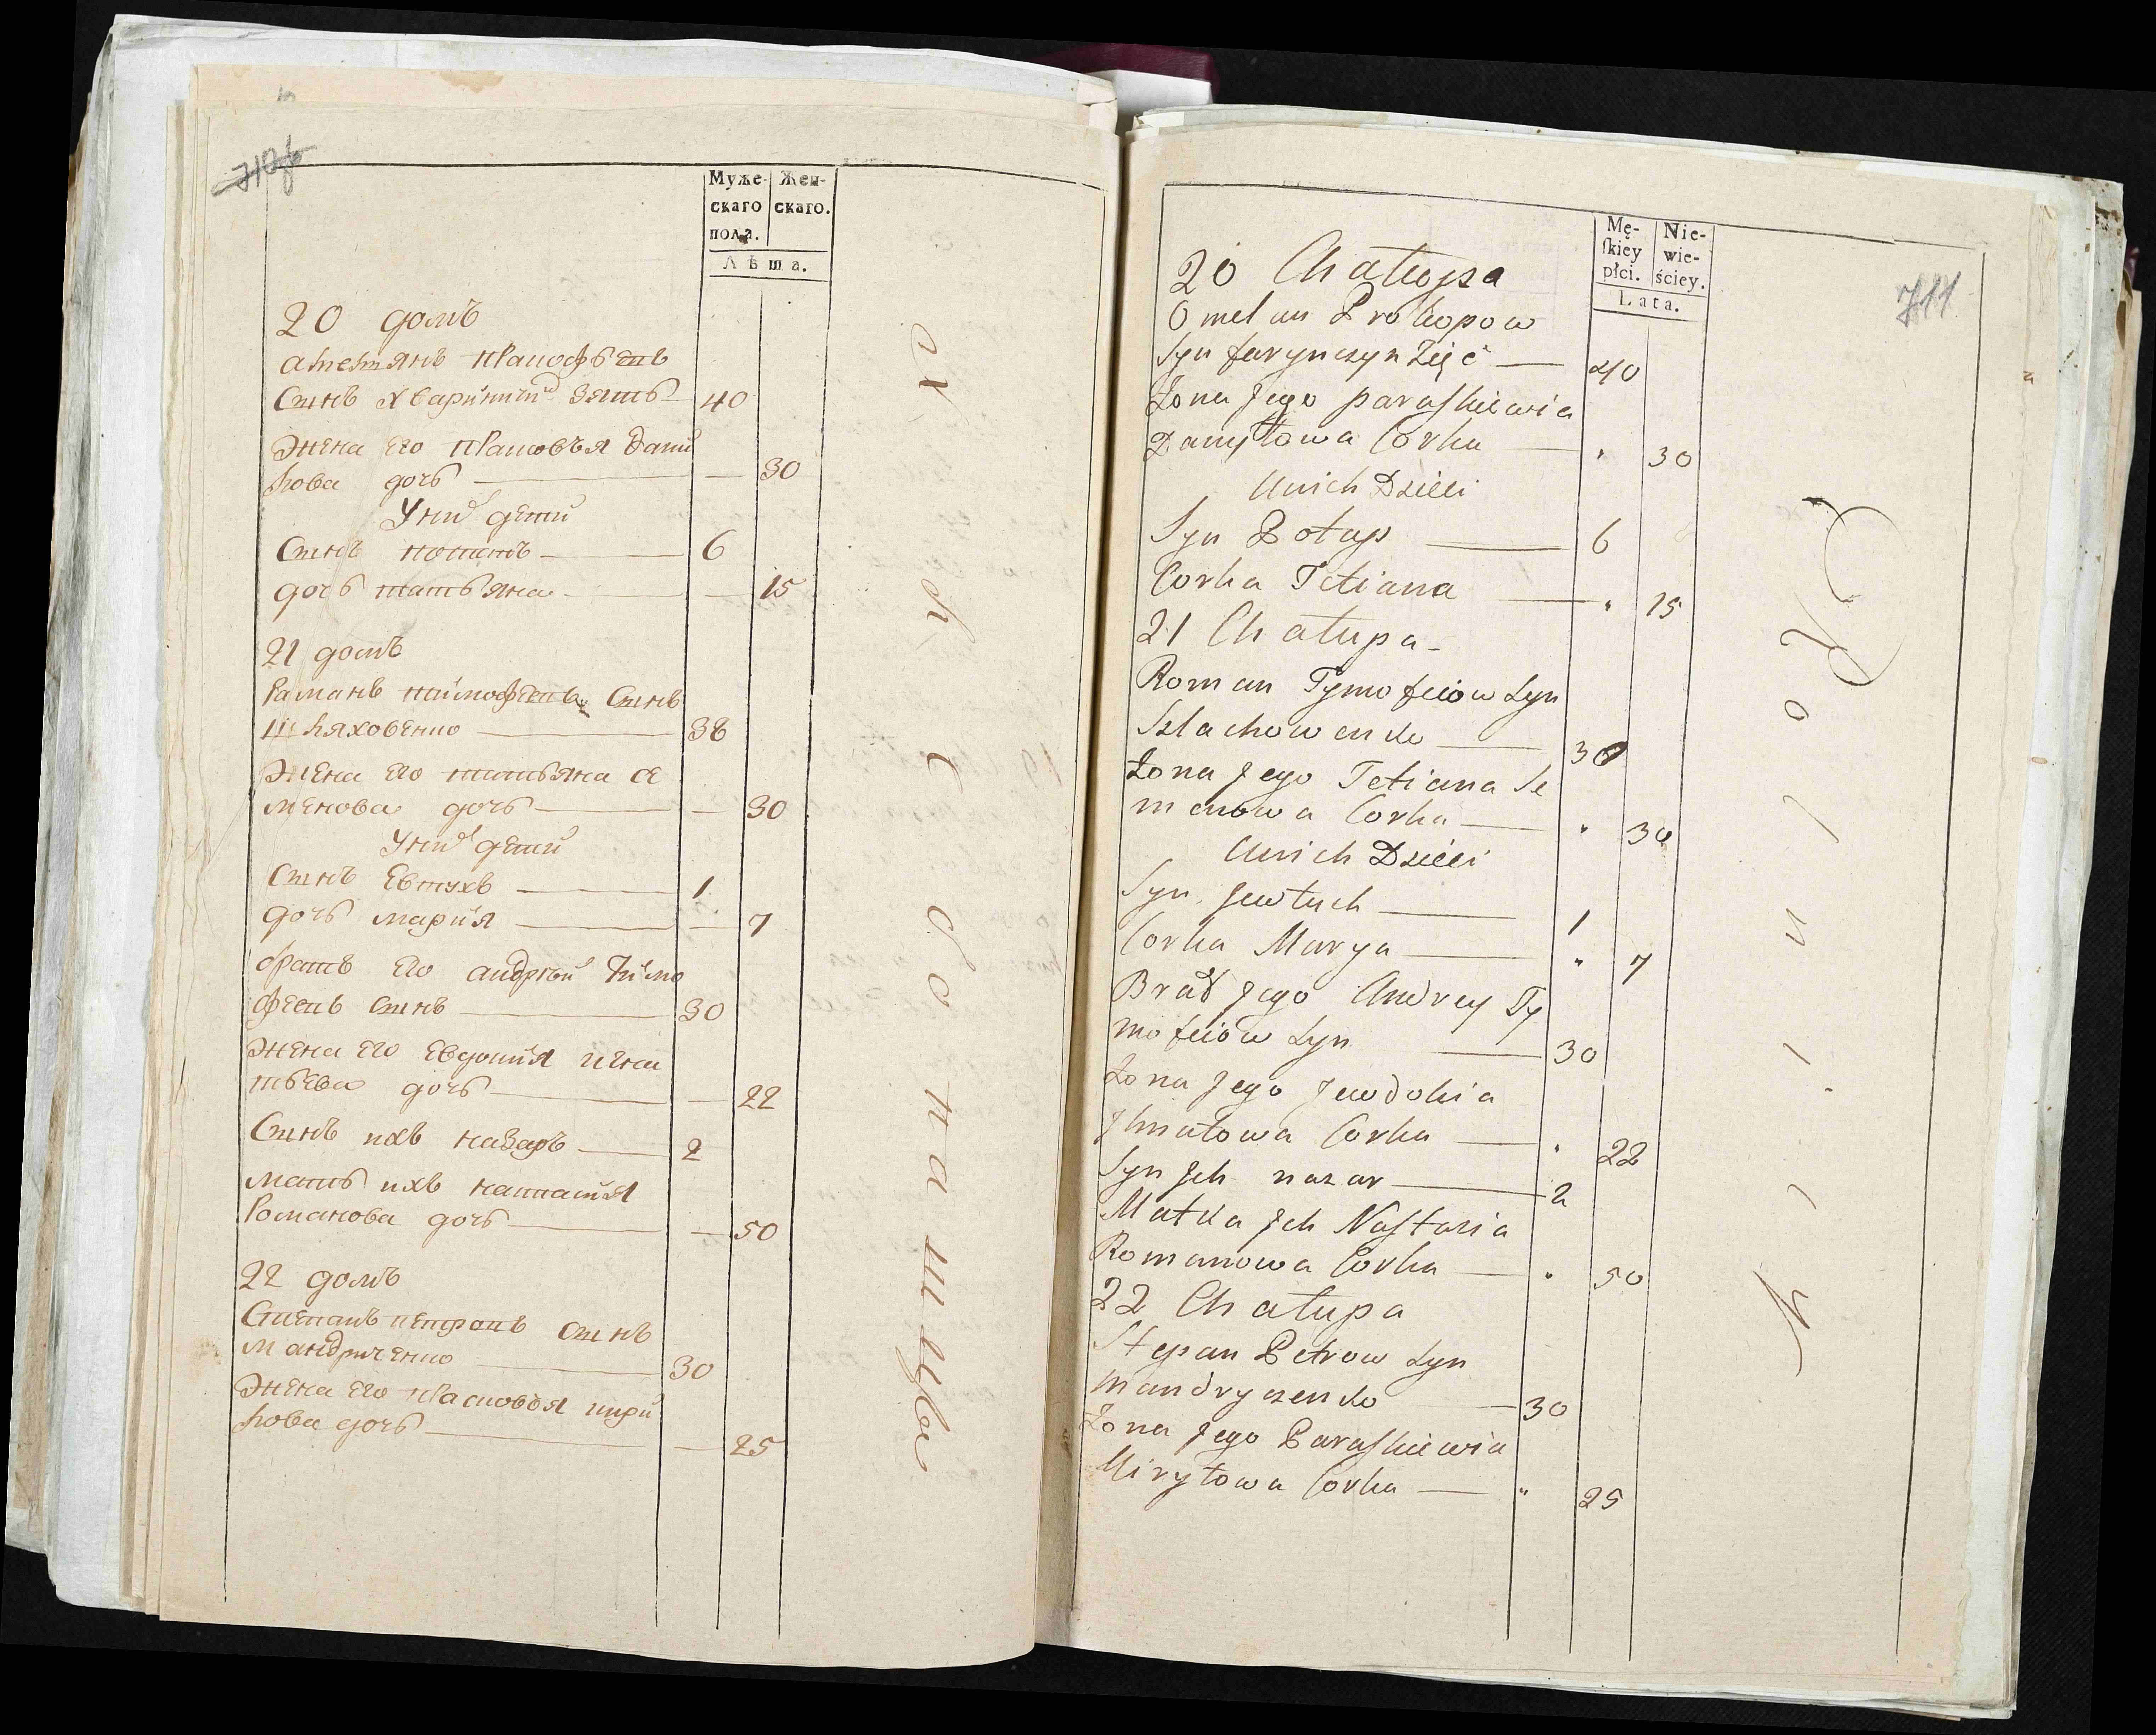 Муже-
скаго
пола.
Жен-
скаго.
Лѣта.
20 домъ
Сынъ зять 40
Жена его Дани
лова дочь — 30
У них дети
Сынъ потапъ 6
дочь татьяна — 15
21 домъ
Раманъ тимофеевъ Сынъ
Шляховенко 38
Жена его татьяна се
менова дочь — 30
У них дети
Сынъ Евтухъ 1
дочь мария — 7
братъ его андрей Тимо
феевъ сынъ 30
Жена его Евдокия игна
тьева дочь — 22
Сынъ ихъ назаръ 2
мать ихъ настасия
Романова дочь — 50
22 домъ
Степанъ петровъ сынъ
мандриченко 30
Жена его Прасковья кири
лова дочь — 25
711
Mę-
skiey
płci.
Nie-
wie-
ściey.
Lata.
20 Chałupa
Omelan Prokopow
Syn Zięć — 40
Żona Jego paraskiewia
Daniłowa Corka — " 30
U nich Dzieci
Syn Potap — 6
Corka Tetiana — " 15
21 Chałupa
Roman Tymofeiow Syn
Szlachowenko — 30
Żona Jego Tetiana Se
menowa Corka — " 30
U nich Dzieci
Syn Jewtuch — 1
Corka Marya — " 7
Brat Jego Andrey Ty
mofeiów Syn — 30
Żona Jego Jewdokia
Ihnatowa Corka — " 22
Syn Jch nazar — 2
Matka Jch Nastazia
Romanowa Corka — " 50
22 Chałupa
Stepan Petrow Syn
Mandryczenko — 30
Żona Jego Paraskiewia
Kiryłowa Corka — " 25